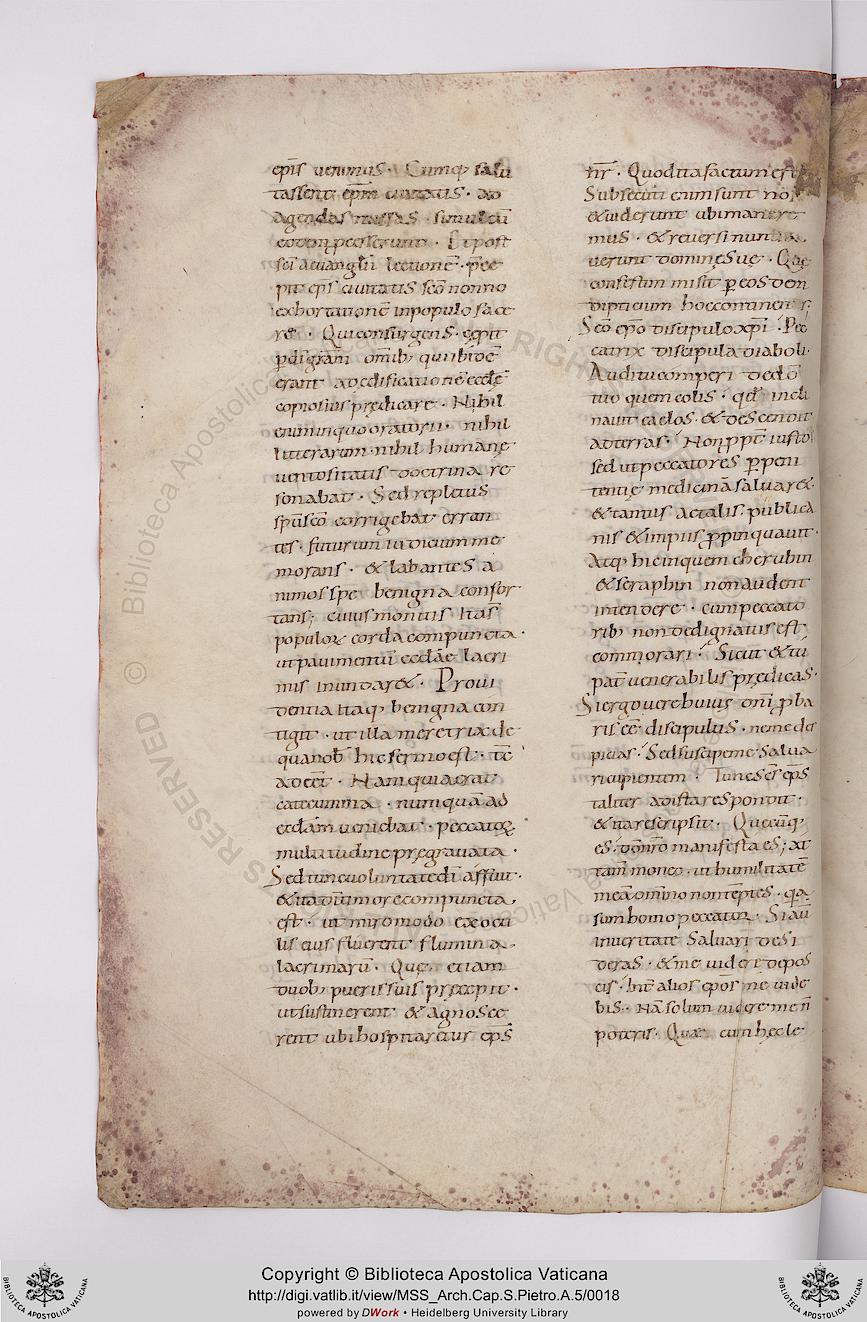 ep̄is uenimus · Cumq; salu
tassent ep̄m ciuitatis · ad
agendas missas · simul cū
eodem p̱cesserunt · Et post
sc̄i aeuanglii lectionē · p̄ce
pit ep̄s ciuitatis sc̄o nonno
exhortationē inpopulo face
re · Qui consurgens · cępit
p̱ di gr̄am om̄ib; qui ibidē
erant adedificationē eccl̄ę
copiosius prędicare · Nihil
enim inquo oratorii · nihil
litterarum · nihil humanę
uentositatis doctrina re
sonabat · Sed repletus
sp̄u sc̄o corrigebat erran
tes · futurum iudicium me
morans · & labantes a
nimos spe benigna confor
tans; cuius monitis Itas̄
populoꝝ corda compuncta ·
ut pauimentū eccl̄ae lacri
mis inundar& · Proui
dentia itaq; benigna con
tigit · ut illa meretrix de
qua nob̄ hic sermo est · tc̄
adeēt · Nam quia erat
catecumina · numquā ad
eccl̄am ueniebat · peccatoꝝ
multitudine pręgrauata ·
Sed tunc uoluntate dī affuit ·
& ita dn̄i timore compuncta
est · ut miro modo ex ocu
lis eius fluerent flumina
lacrimarū · Quę etiam
duob; pueris suis pręcepit ·
ut sustinerent & agnosce
rent ubi hospitaretur ep̄s
nr̄ · Quod ita factum est
Subsecuti enim sunt nos
& uiderunt ubi manere
mus · & reuersi nuntia
uerunt dominę suę · Quę
confestim misit p̱ eos den
dipticium hoc continens
Sc̄o ep̄o discipulo xp̄i · Pec
catrix discipula diaboli ·
Auditu comperi de dō
tuo quem colis · qđ incli
nauit caelos · & descendit
ad terras · Non p̱pt̄ iustos
sed ut peccatores p̱ peni
tentię medicinā saluar& ·
& tantus ac talis · publica
nis & impiis p̱pinquauit ·
Atq; hic in quem cherubin
& seraphin non audent
intendere · cum peccato
rib; non dedignatus est
commorari · Sicut & tu
pat̄ uenerabilis prędicas ·
Si ergo uere huius dn̄i p̱ba
ris eē discipulus · ne me des
picias · Sed suscipe me salua
ri cupientem · Tunc sc̄s ep̄s
taliter ad ista respondit ·
& ita rescripsit · Quęcūq;
es · dō nr̄o manifesta es; at
tam̄ moneo · ut humilitatē
meā omnino non tēptes · qa
sum homo peccator · Si aū
in ueritate saluari desi
deras · & me uidere depos
cis · Int̄ alios ep̄os me uide
bis · Nā solum uidere me n̄
poteris · Quae cum hęc le
Copyright © Biblioteca Apostolica Vaticana
http://digi.vatlib.it/view/MSS_Arch.Cap.S.Pietro.A.5/0018
powered by DWork • Heidelberg University Library